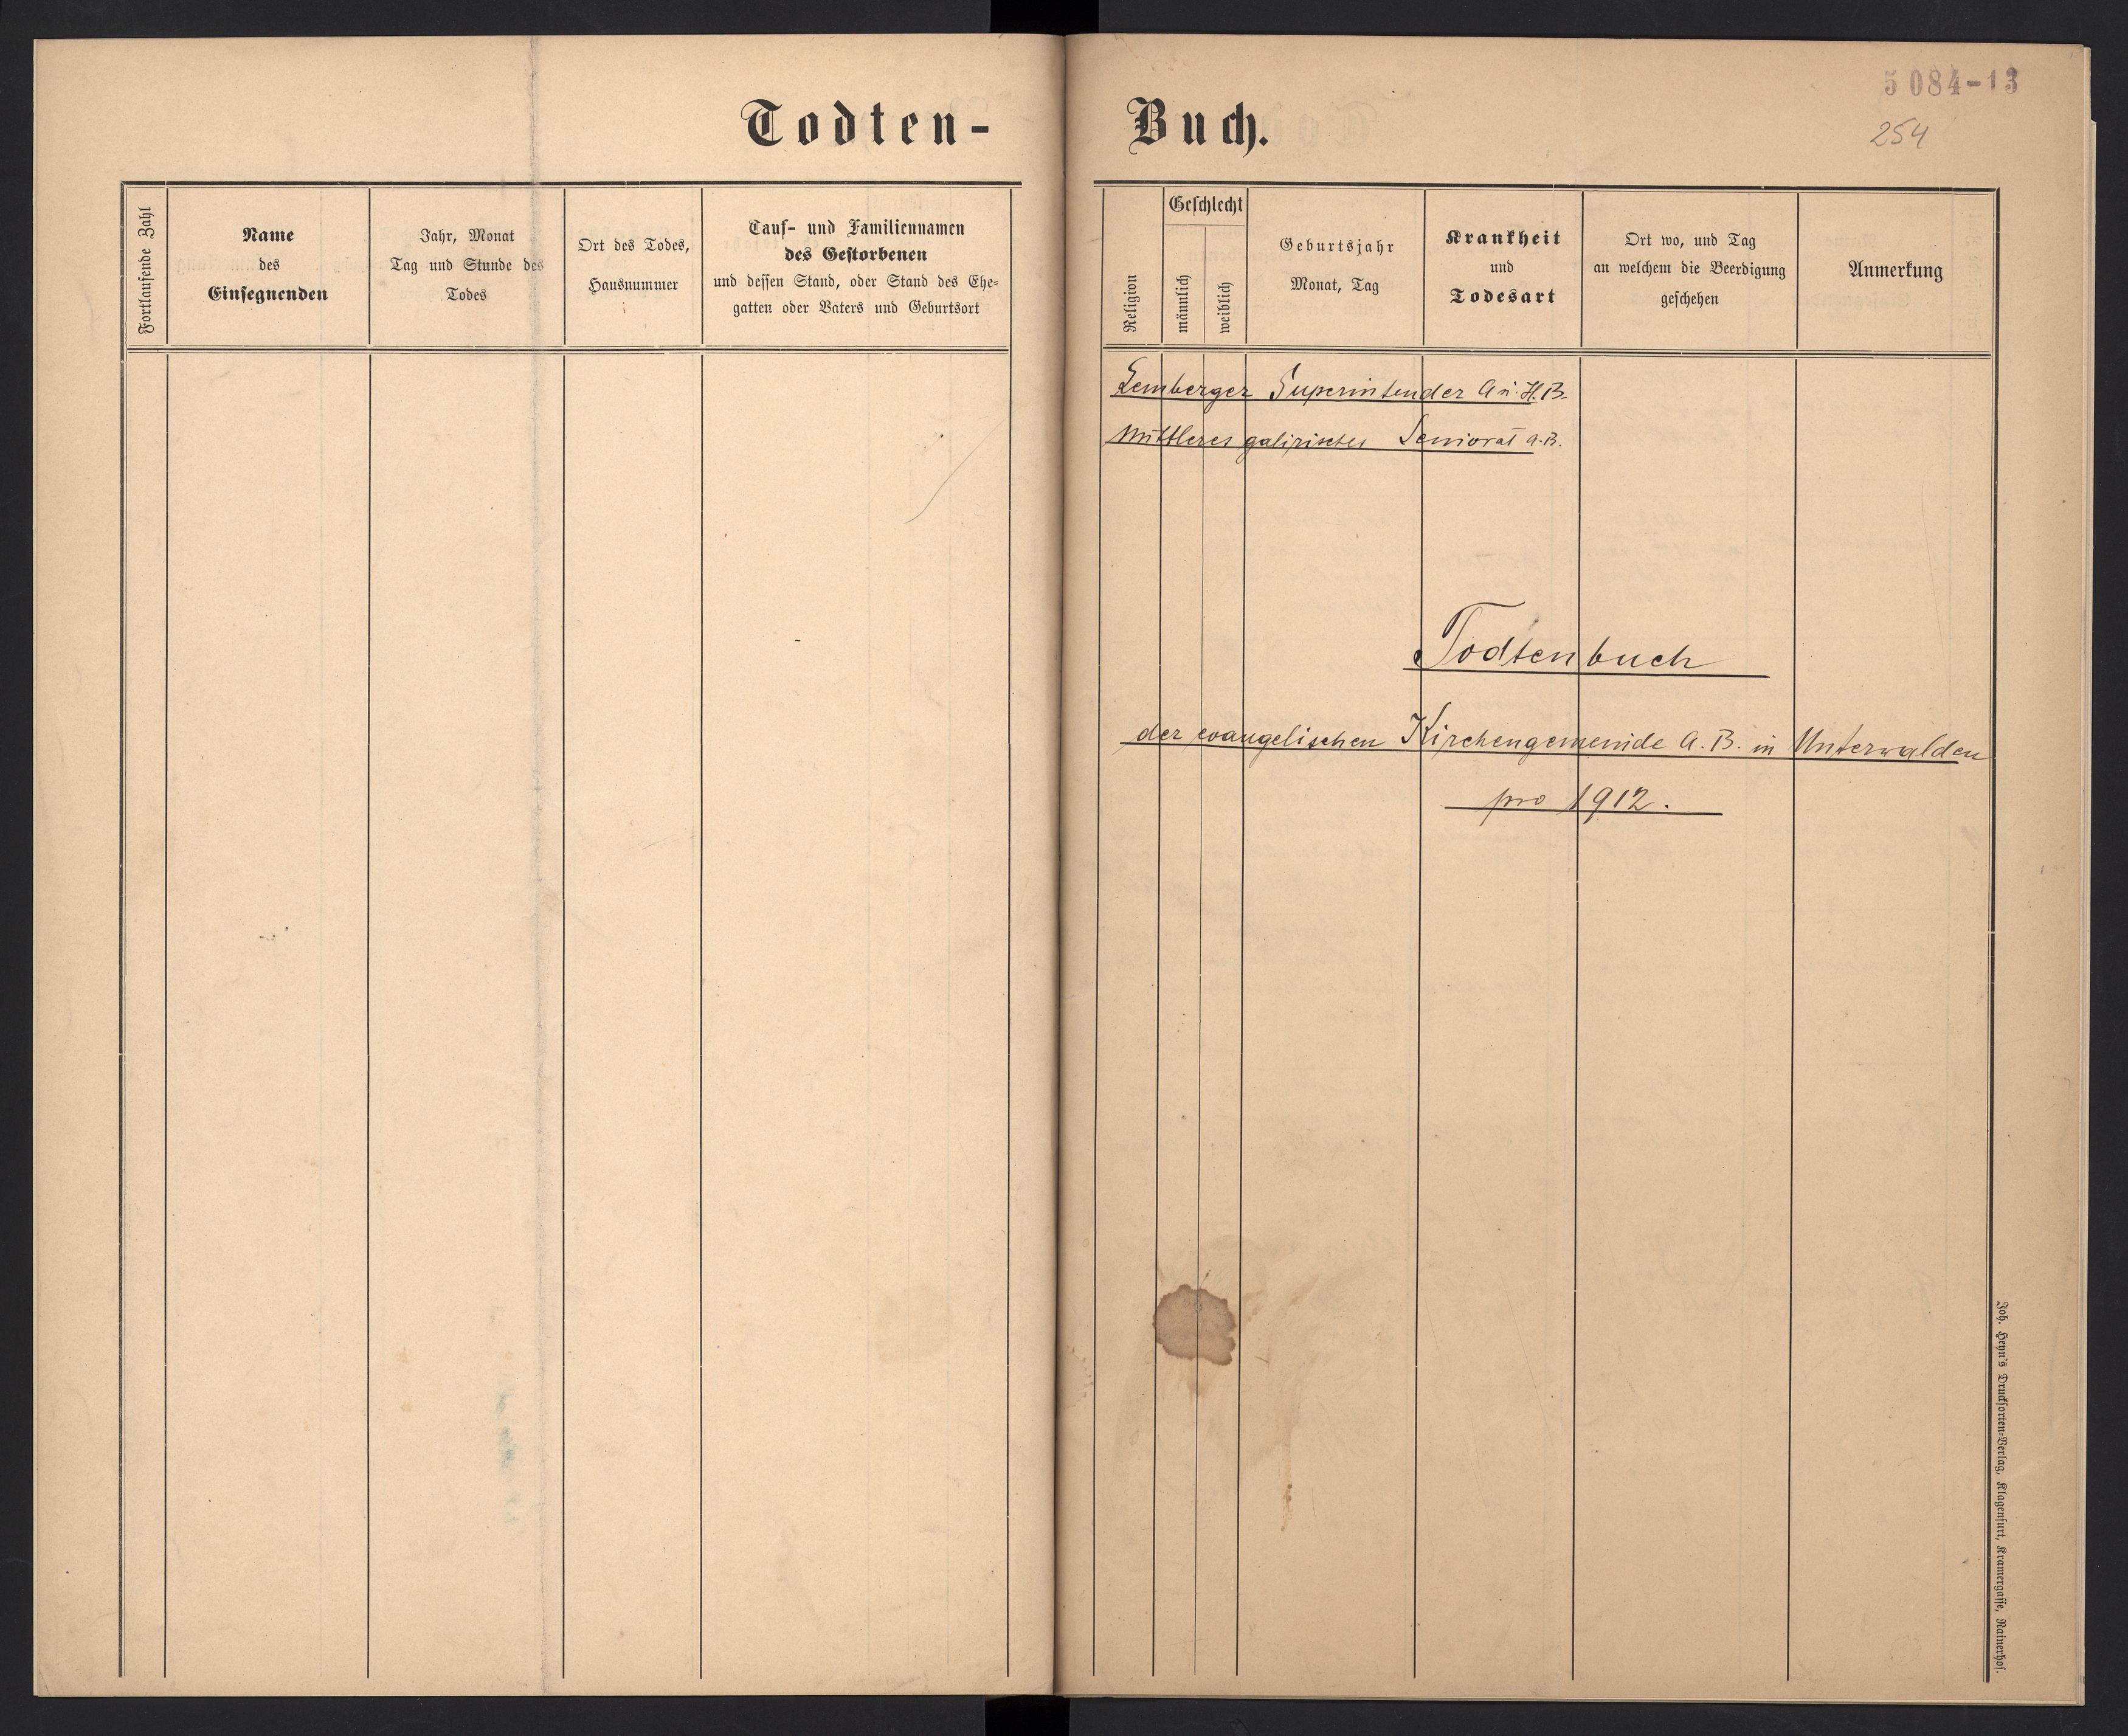 Todten-
Fortlaufende Zahl
Name
des
Einsegnenden
Jahr, Monat
Tag und Stunde des
Todes
Ort des Todes,
Hausnummer
Tauf- und Familiennamen
des Gestorbenen
und dessen Stand, oder Stand des Ehe-
gatten oder Vaters und Geburtsort
5084-13
254
Buch.
Religion
Geschlecht
männlich
weiblich
Geburtsjahr
Monat, Tag
Krankheit
und
Todesart
Ort wo, und Tag
an welchem die Beerdigung
geschehen
Anmerkung
Lemberger Superintender A u. H. B.
Mittleres galizisches Seniorat A. B.
Todtenbuch
der evangelischen Kirchengemeinde A. B. in Unterwalden
pro 1912.
Joh. Heyn's Drucksorten-Verlag, Klagenfurt, Kramergasse, Rainerhof.